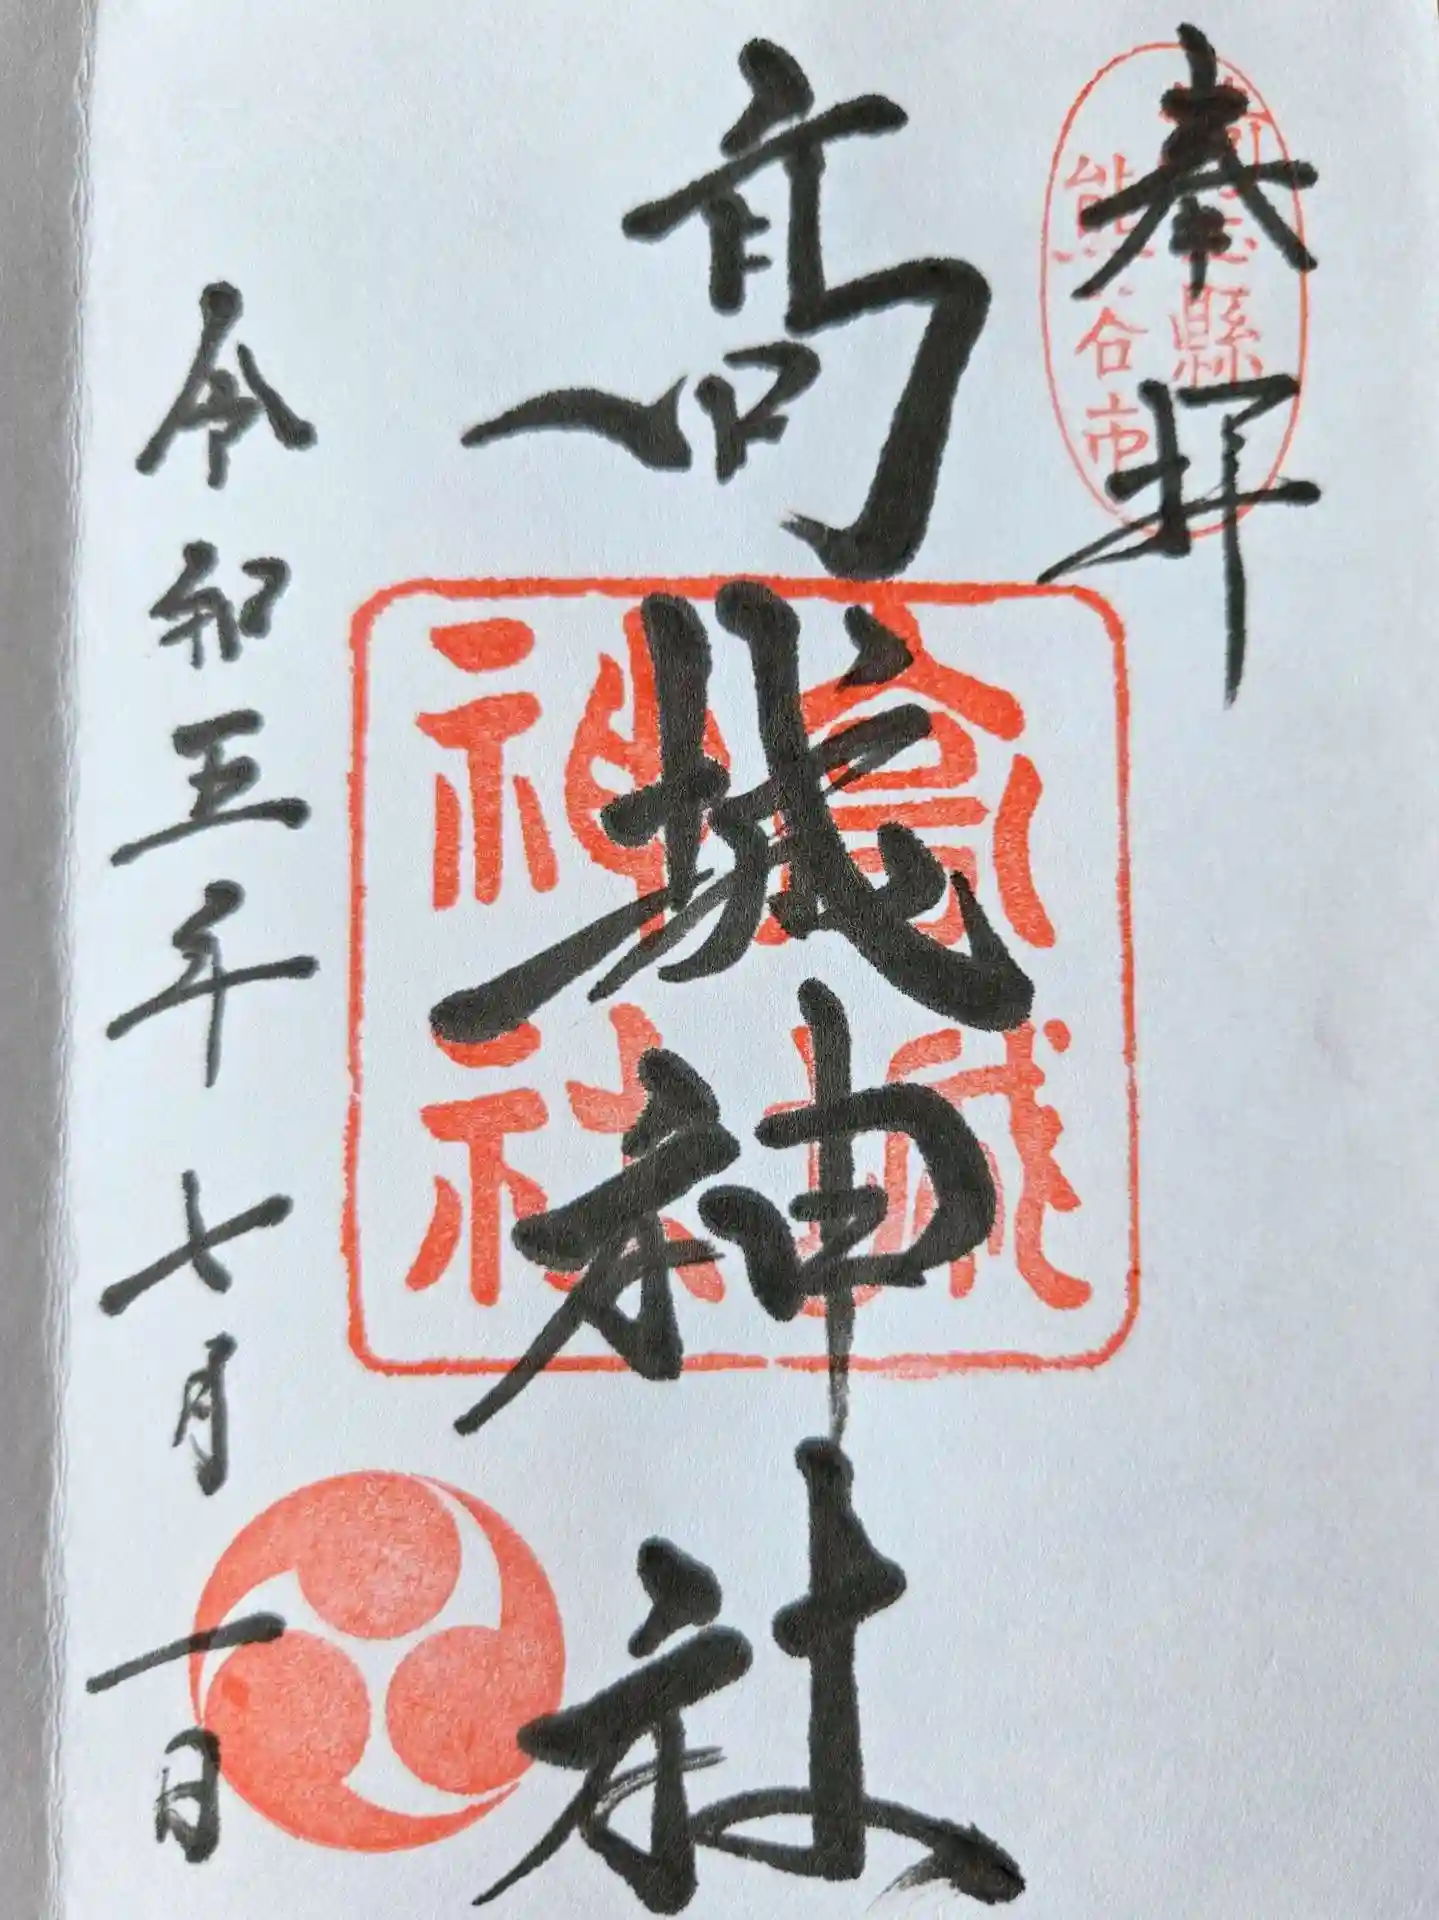 奉拝
埼玉縣
熊谷市
高城神社
高城
神社
令和五年七月一日